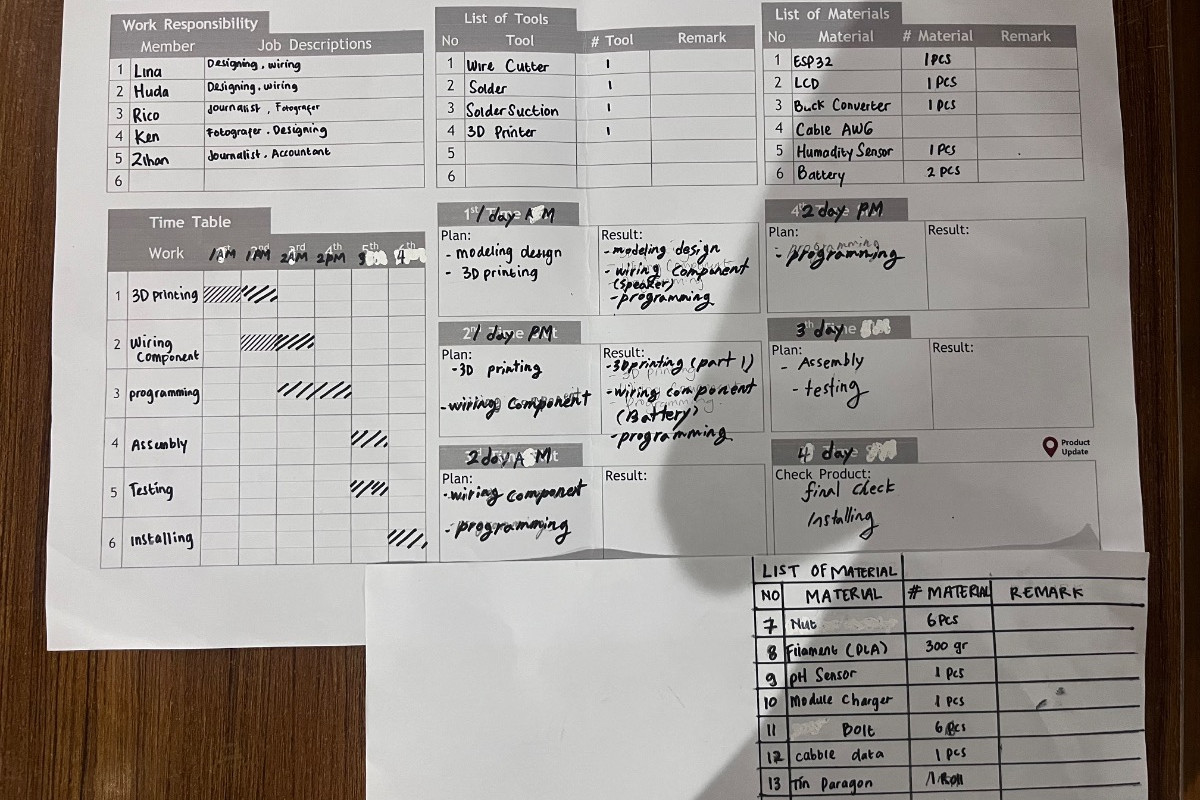 Work Responsibility
Member Job Descriptions
1 Lina Designing, wiring
2 Huda Designing, wiring
3 Rico Journalist, Fotografer
4 Ken Fotografer, Designing
5 Zihan Journalist, Accountant
6
List of Tools
No Tool # Tool Remark
1 Wire Cutter 1
2 Solder 1
3 Solder Suction 1
4 3D Printer 1
5
6
List of Materials
No Material # Material Remark
1 ESP32 1 PCS
2 LCD 1 PCS
3 Buck Converter 1 PCS
4 Cable AWG
5 Humadity Sensor 1 PCS
6 Battery 2 PCS
Time Table
Work 1AM 1AM 2AM 2pm 4
1 3D printing
2 Wiring Component
3 programming
4 Assembly
5 Testing
6 installing
1 day AM
Plan:
- modeling design
- 3D printing
Result:
- modeling design
- wiring component
(speaker)
- programming
1 day PM
Plan:
- 3D printing
- wiring component
Result:
- 3D printing (part 1)
- wiring component
(Battery)
- programming
2 day AM
Plan:
- wiring component
- programming
Result:
2 day PM
- programming
Result:
3 day
Plan:
- Assembly
- testing
Result:
4 day
Product
Update
Check Product:
final check
Installing
LIST OF MATERIAL
NO MATERIAL # MATERIAL REMARK
7 Nut 6 Pcs
8 Filament (PLA) 300 gr
9 pH Sensor 1 Pcs
10 Module Charger 1 Pcs
11 Bolt 6 Pcs
12 cabble data 1 PCS
13 Tin Paragon 1 Roll